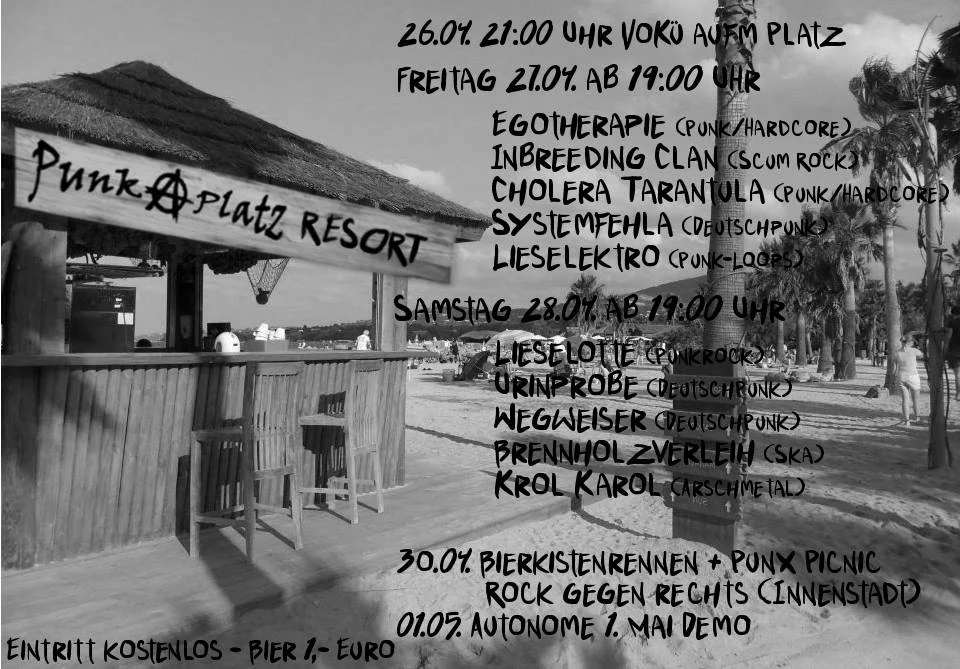 26.04. 21:00 UHR VOKÜ AUFM PLATZ
FREITAG 27.04. AB 19:00 UHR
EGOTHERAPIE (PUNK/HARDCORE)
INBREEDING CLAN (SCUM ROCK)
CHOLERA TARANTULA (PUNK/HARDCORE)
SYSTEMFEHLA (DEUTSCHPUNK)
LIESELEKTRO (PUNK-LOOPS)
Punk A Platz RESORT
SAMSTAG 28.04. AB 19:00 UHR
LIESELOTTE (PUNKROCK)
URINPROBE (DEUTSCHPUNK)
WEGWEISER (DEUTSCHPUNK)
BRENNHOLZVERLEIH (SKA)
KROL KAROL (ARSCHMETAL)
30.04. BIERKISTENRENNEN + PUNX PICNIC
ROCK GEGEN RECHTS (INNENSTADT)
01.05. AUTONOME 1. MAI DEMO
EINTRITT KOSTENLOS - BIER 1,- EURO